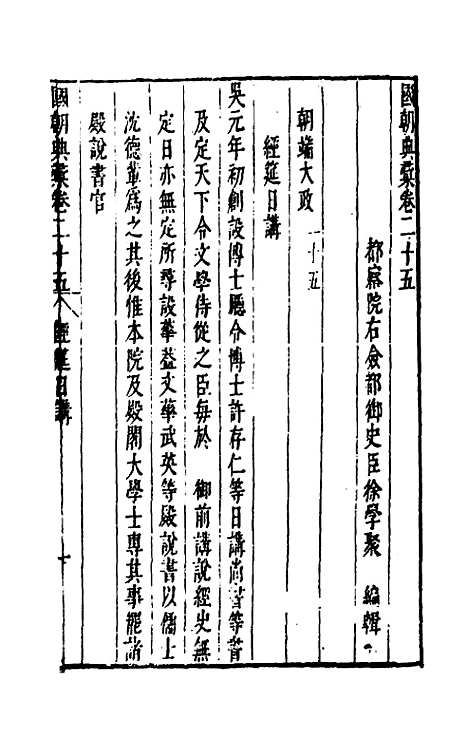 國朝典彙卷二十五
都察院右僉都御史臣徐學聚　編輯
朝端大政　二十五
經筵日講
吳元年初創設博士廳令博士許存仁等日講尚書等書
及定天下令文學侍從之臣每於　御前講說經史無
定日亦無定所尋設華蓋文華武英等殿說書以儒士
沈德輩為之其後惟本院及殿閣大學士專其事罷諸
殿說書官
國朝典彙卷二十五　經筵日講　一